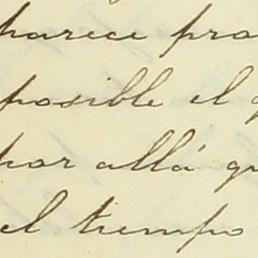 parece pro
posible el q
por allá qu
el tiempo